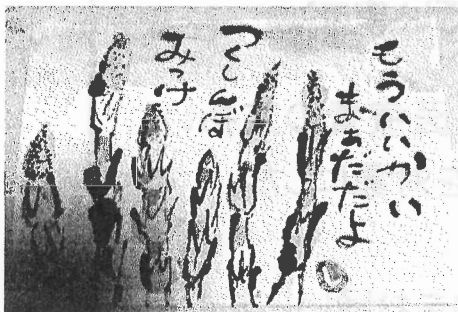 もういいかい
まぁだだよ
つくしんぼ
みっけ